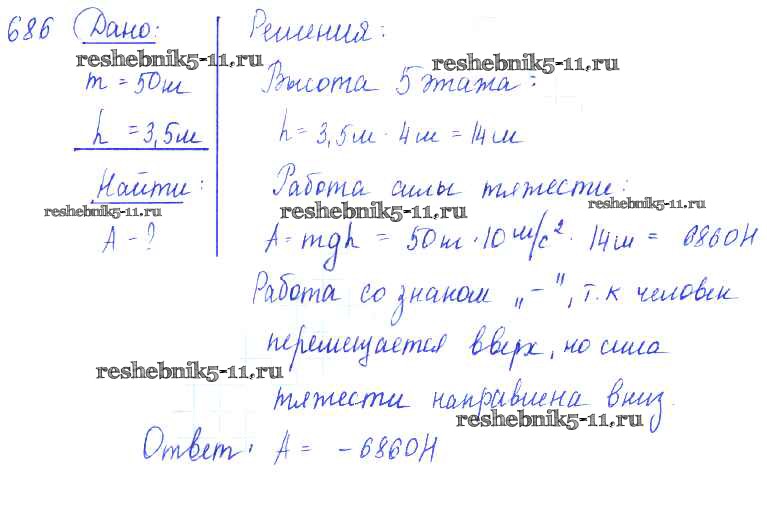 686 Дано:
reshebnik5-11.ru
m = 50м
h = 3,5м
Найти:
reshebnik5-11.ru
A - ?
Решения:
reshebnik5-11.ru
Высота 5 этажа:
h = 3,5м · 4м = 14м
Работа силы тяжести:
reshebnik5-11.ru
reshebnik5-11.ru
A = mgh = 50м · 10 м/с² · 14м = 6860Н
Работа со знаком „-", т.к человек
перемещается вверх, но сила
reshebnik5-11.ru
тяжести направлена вниз.
reshebnik5-11.ru
Ответ: A = -6860Н